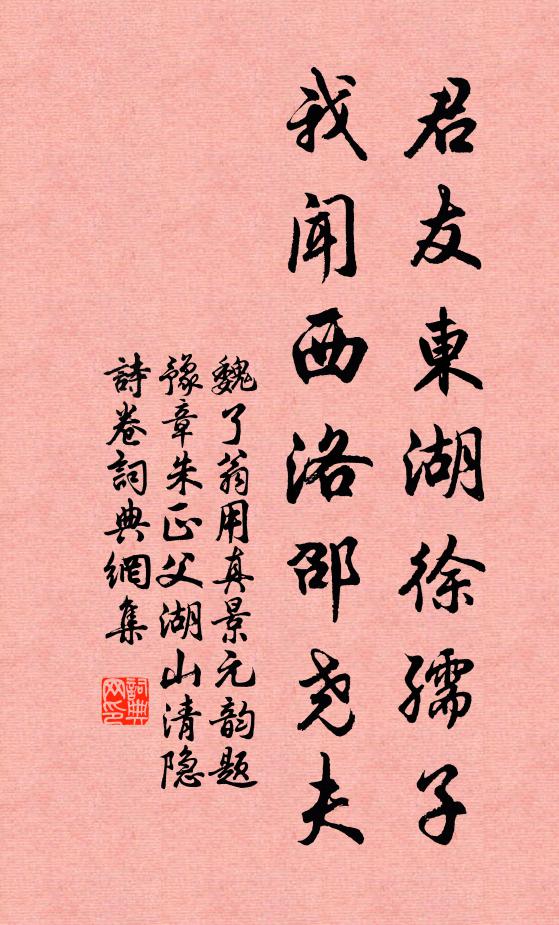 君友東湖徐孺子
我聞西洛邵尧夫
魏了翁用真景元韵題
豫章朱正父湖山清隐
詩卷詞典網集
詞典
网印